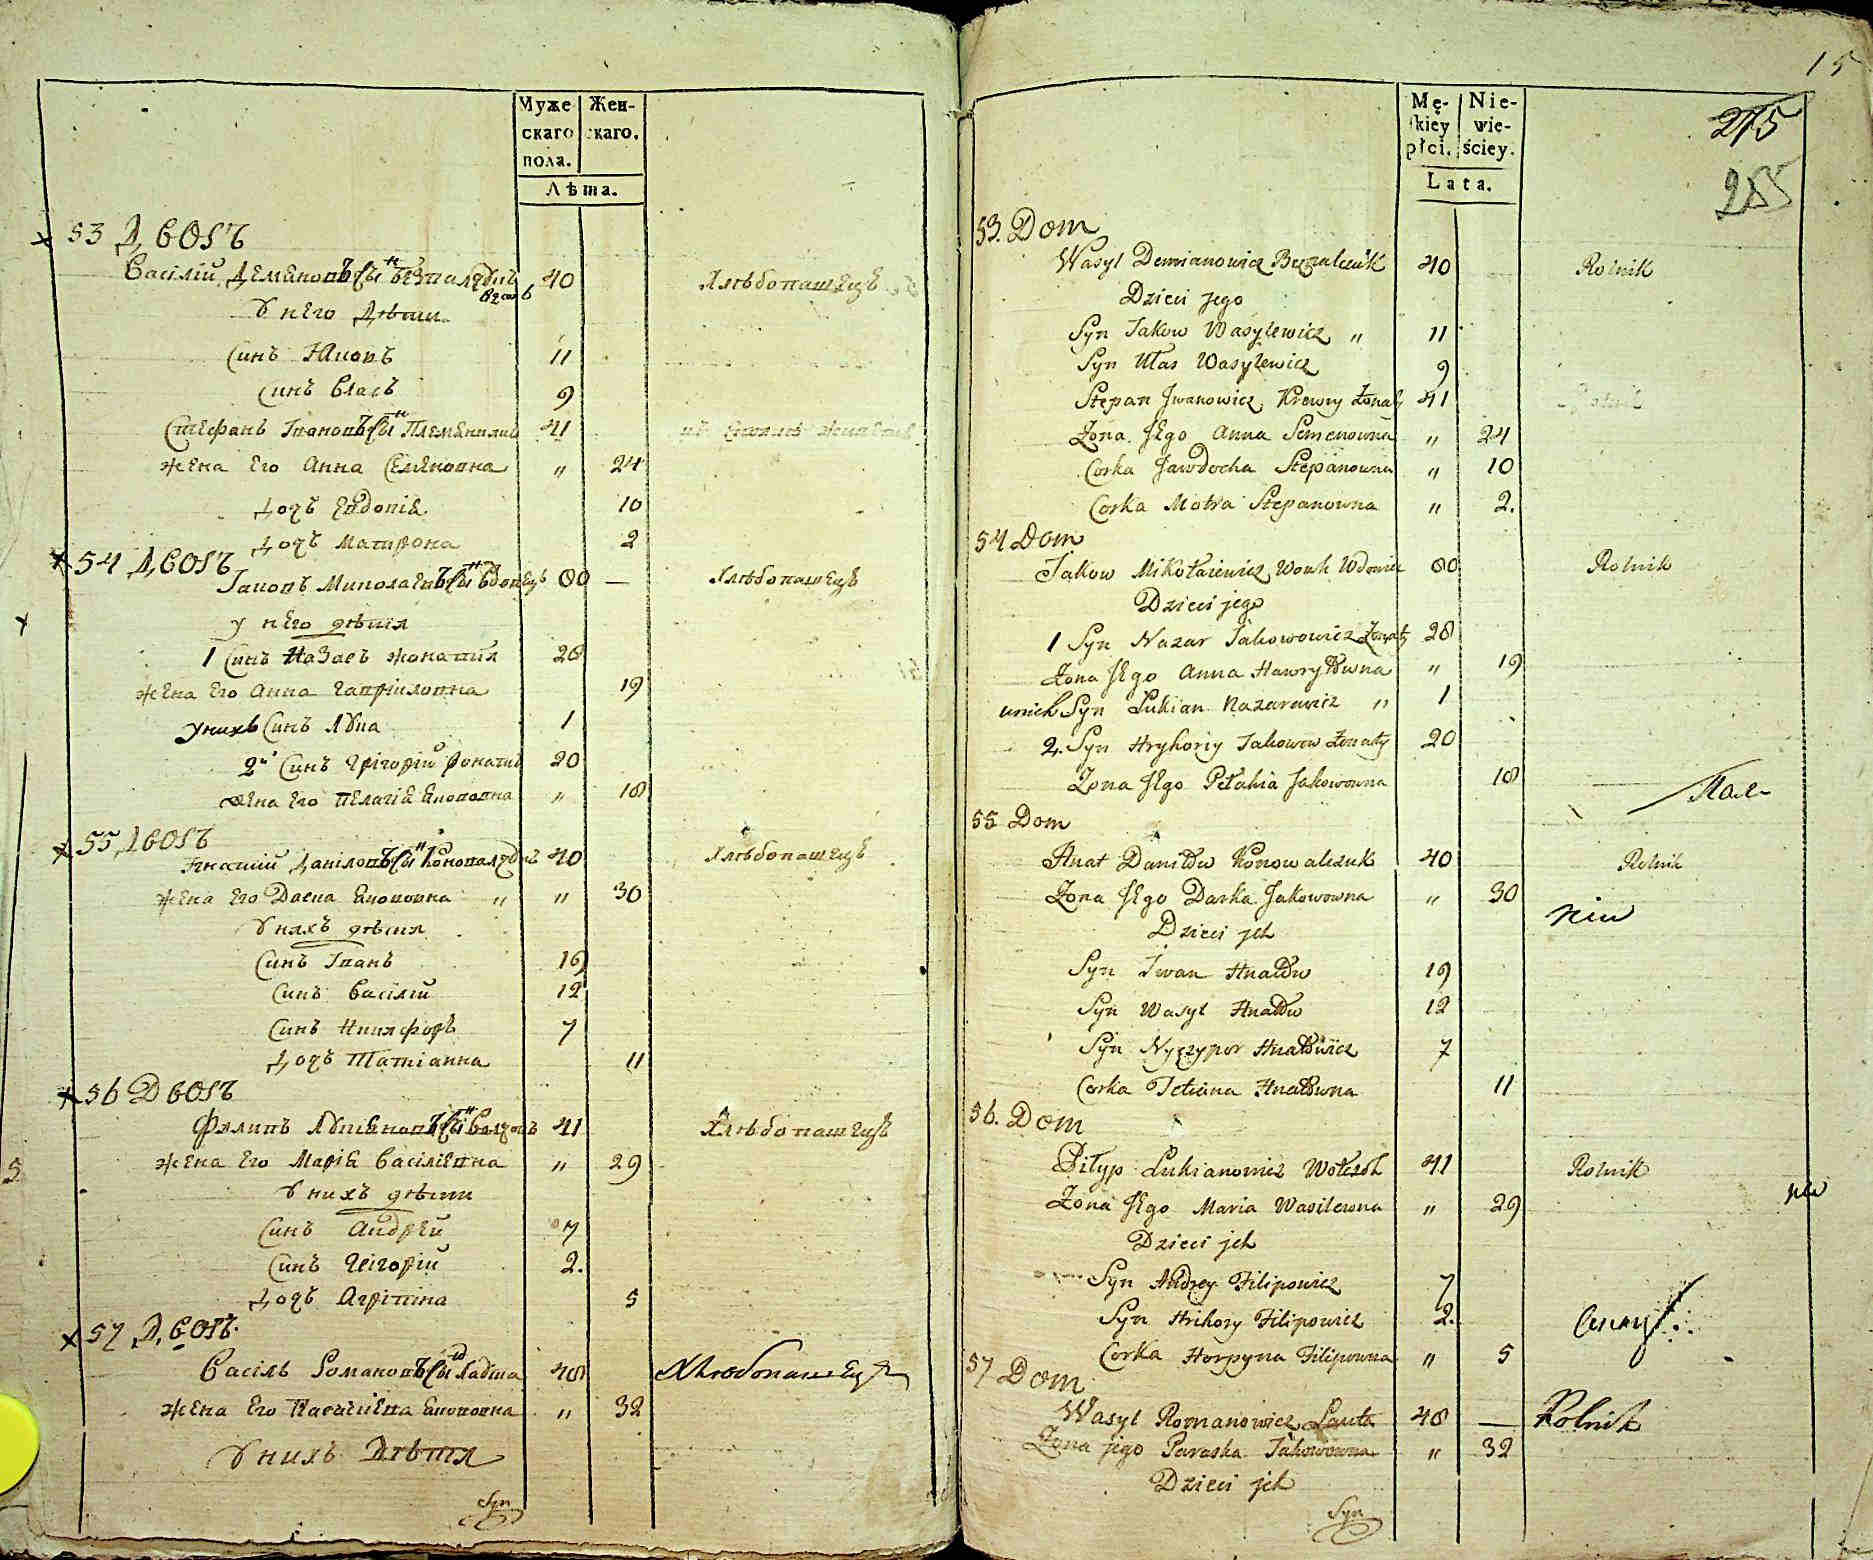 Мужескаго пола.
Женскаго.
Лѣта.
53 Дворъ
Василій Демяновъ сынъ 40 Хлѣбопашецъ
У него Дѣти
Синъ Яковъ 11
Синъ Власъ 9
Стефанъ Ивановъ сынъ Племянникъ 41
жена Его Анна Семеновна „ 24
доч Евдокія 10
доч Матрона 2
54 Дворъ
Іаковъ Миколаевъ сынъ Вдовецъ 80 — Хлѣбопашецъ
у него дѣтія
1 Синъ Назаръ жонатия 28
жена Его Анна Гавриловна 19
у нихъ Синъ Лука 1
2й Синъ Григорій жонатий 20
жена Его Пелагія Якововна „ 18
55 Дворъ
Игнатій Даниловъ сынъ Коновалчукъ 40 Хлѣбопашецъ
жена Его Дарка Якововна „ „ 30
У нихъ дѣтия
Синъ Іванъ 19
Синъ Василій 12
Синъ Никифоръ 7
доч Татіанна 11
56 Дворъ
Филипъ Лукяновъ сынъ 41 Хлѣбопашецъ
жена Его Марія Василіевна „ 29
У нихъ дѣти
Синъ Андрей 7
Синъ Григорій 2.
доч Агрипина 5
57 Дворъ
Василь Романовъ сынъ Лавта 48 Хлѣбопашецъ
жена Его Параскева Якововна „ 32
У нихъ Дѣтия
Syn
15
275
255
Męskiey płci.
Niewieściey.
Lata.
53. Dom
Wasyl Demianowicz 40 Rolnik
Dzieci jego
Syn Jakow Wasylewicz „ 11
Syn Ułas Wasylewicz 9
Stepan Jwanowicz Krewny Żonaty 41 Rolnik
Żona JEgo Anna Semenowna „ 24
Corka Jawdocha Stepanowna „ 10
Corka Motra Stepanowna „ 2.
54 Dom
Jakow Mikołaiewicz Wowk Wdowiec 80 Rolnik
Dzieci jego
1 Syn Nazar Jakowowicz Żonaty 28
Żona JEgo Anna Hawryłowna „ 19
unich Syn Łukian Nazarowicz „ 1
2. Syn Hryhoriy Jakowow Żonaty 20
Żona JEgo Pełahia Jakowowna 18
55 Dom
Hnat Daniłow Konowalczuk 40 Rolnik
Żona JEgo Darka Jakowowna „ 30
Dzieci jch
Syn Jwan Hnatow 19
Syn Wasyl Hnatow 12
Syn Nyczypor Hnatowicz 7
Corka Tetiana Hnatowna 11
56. Dom
Piłyp Łukianowicz Wołczok 41 Rolnik
Żona JEgo Maria Wasilewna „ 29
Dzieci jch
Syn Andrey Filipowicz 7
Syn Hrihory Filipowicz 2.
Corka Horpyna Filipowna „ 5
57 Dom
Wasyl Romanowicz Lauta 48 — Rolnik
Żona jego Paraska Jakowowna „ 32
Dzieci jch
Syn